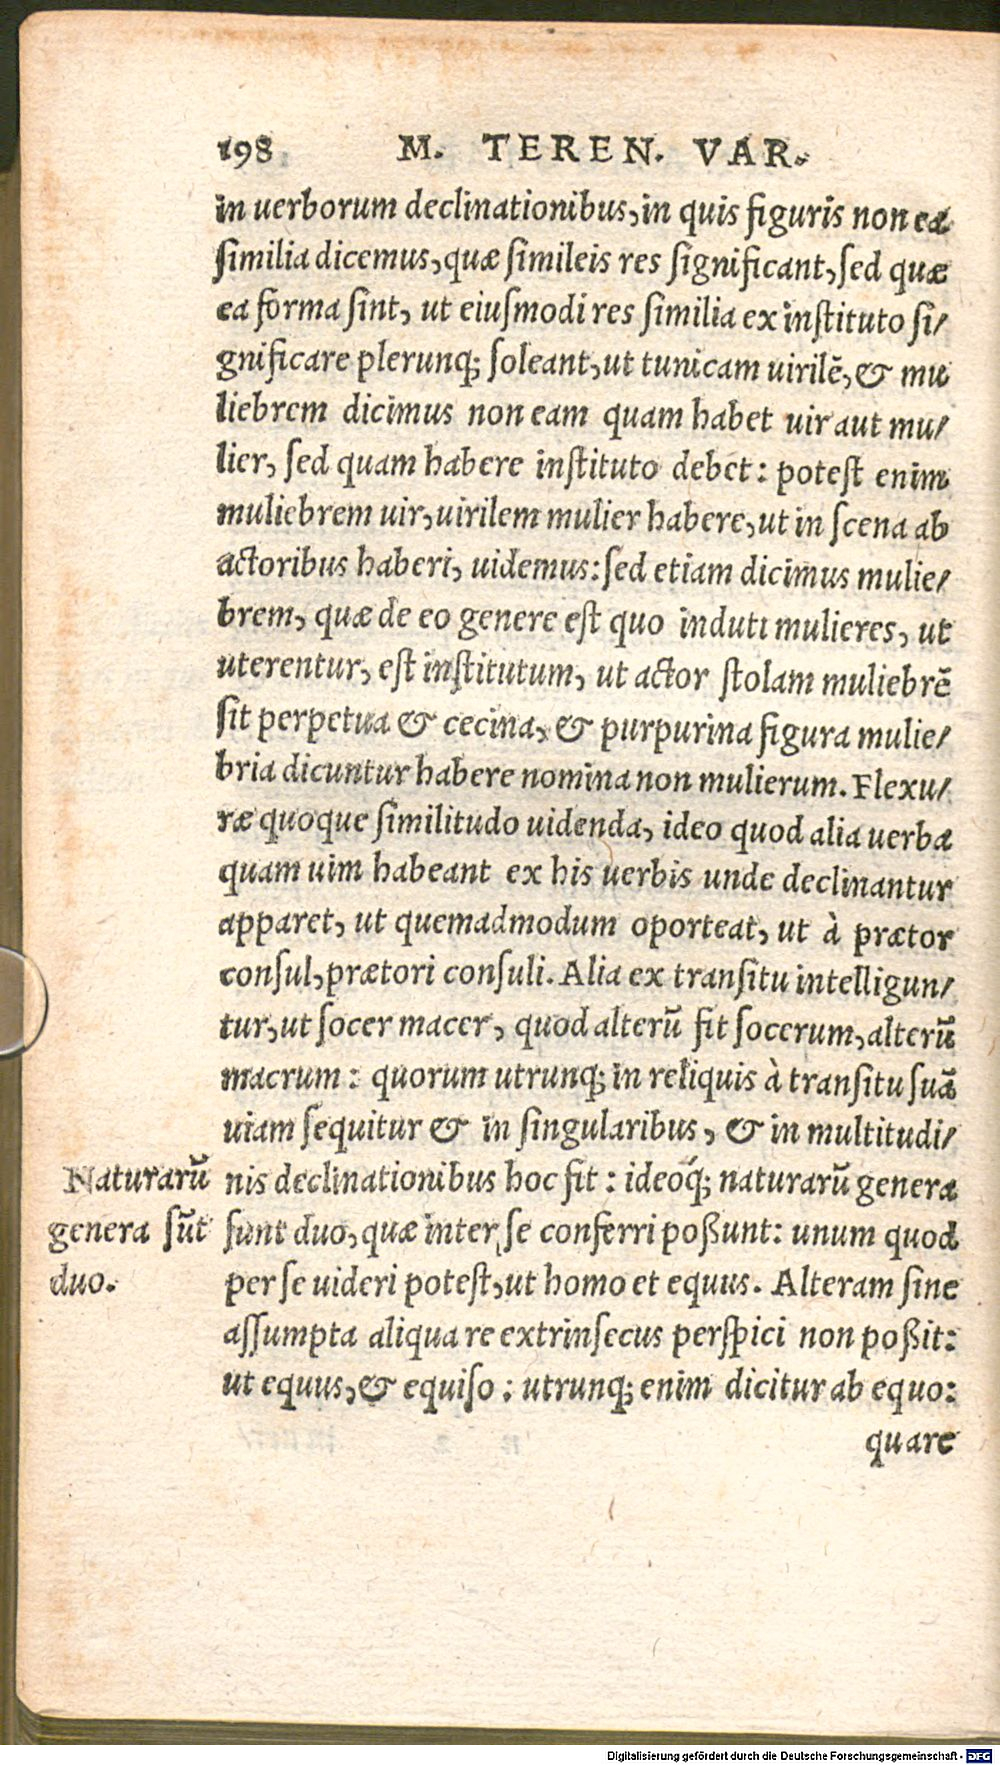 198 M. TEREN. VAR.
in uerborum declinationibus, in quis figuris non ea
ſimilia dicemus, quæ ſimileis res ſignificant, ſed quæ
ea forma ſint, ut eiuſmodi res ſimilia ex inſtituto ſi/
gnificare plerunq; ſoleant, ut tunicam uirilẽ, & mu
liebrem dicimus non eam quam habet uir aut mu/
lier, ſed quam habere inſtituto debet: poteſt enim
muliebrem uir, uirilem mulier habere, ut in ſcena ab
actoribus haberi, uidemus: ſed etiam dicimus mulie/
brem, quæ de eo genere eſt quo induti mulieres, ut
uterentur, eſt inſtitutum, ut actor ſtolam muliebrẽ
ſit perpetua & cecina, & purpurina figura mulie/
bria dicuntur habere nomina non mulierum. Flexu/
ræ quoque ſimilitudo uidenda, ideo quod alia uerba
quam uim habeant ex his uerbis unde declinantur
apparet, ut quemadmodum oporteat, ut à prætor
conſul, prætori conſuli. Alia ex tranſitu intelligun/
tur, ut ſocer macer, quod alterũ fit ſocerum, alterũ
macrum: quorum utrunq; in reliquis à tranſitu ſuã
uiam ſequitur & in ſingularibus, & in multitudi/
nis declinationibus hoc fit: ideóq; naturarũ genera
ſunt duo, quæ inter ſe conferri poßunt: unum quod
per ſe uideri poteſt, ut homo et equus. Alteram ſine
aſſumpta aliqua re extrinſecus perſpici non poßit:
ut equus, & equiſo: utrunq; enim dicitur ab equo:
quare
Naturarũ
genera ſũt
duo.
Digitalisierung gefördert durch die Deutsche Forschungsgemeinschaft - DFG